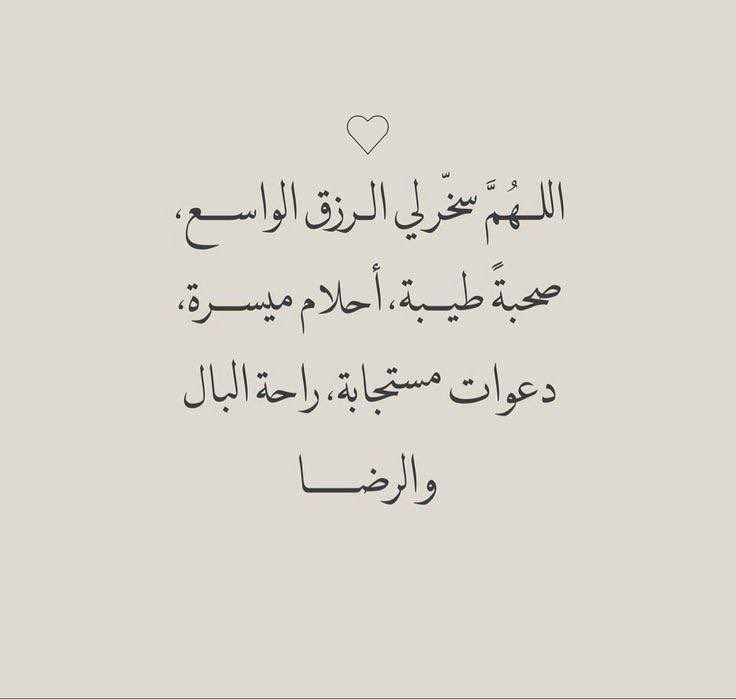 اللـهُمَّ سخّر لي الـرزق الواســع،
صحبةً طيـبة، أحلام ميســرة،
دعوات مستجابة، راحة البال
والرضــا